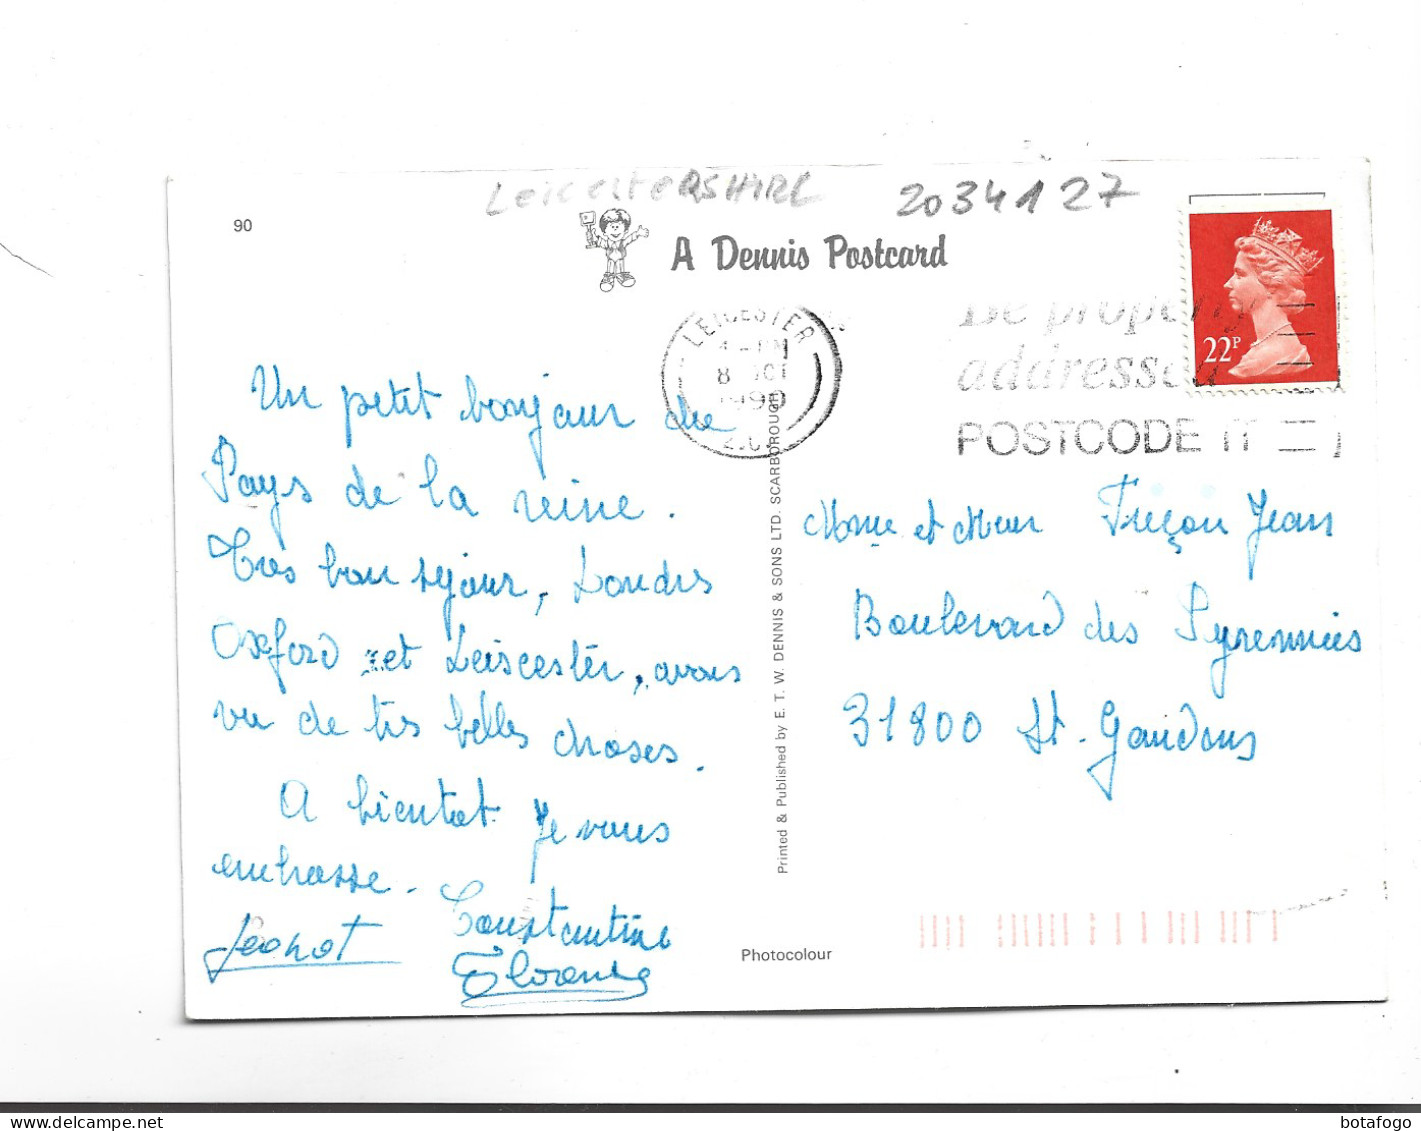 LEICESTERSHIRE 2034127
90
A Dennis Postcard
LEICESTER
PM
8 OCT
1990
Be properly
addressed
POSTCODE IT
22P
Un petit bonjour du
Pays de la reine.
Très bon séjour, Londres
Oxford et Leiscester, avons
vu de très belles choses.
A bientot Je vous
embrasse.
Jeanot
Constantine
Florence
Printed & Published by E. T. W. DENNIS & SONS LTD. SCARBOROUGH
Mme et Meur Jean
Boulevard des Pyrennées
31800 St. Gaudens
Photocolour
botafogo